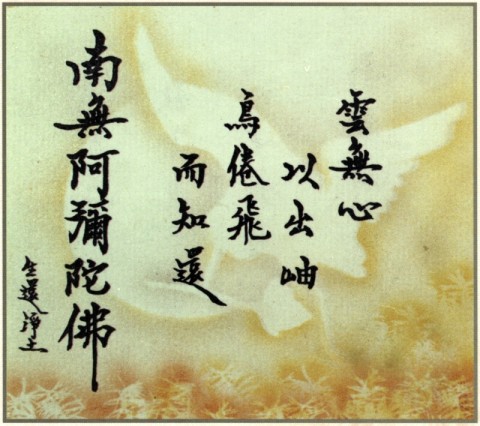 雲無心
以出岫
鳥倦飛
而知還
南無阿彌陀佛
生還淨土